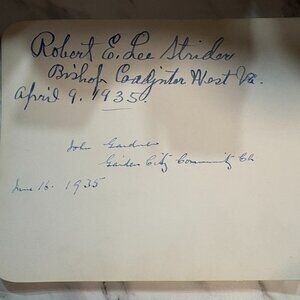 Robert E. Lee Strider
Bishop Coadjutor West Va.
April 9, 1935.
John Gardner
Garden City Community Ch
June 16. 1935